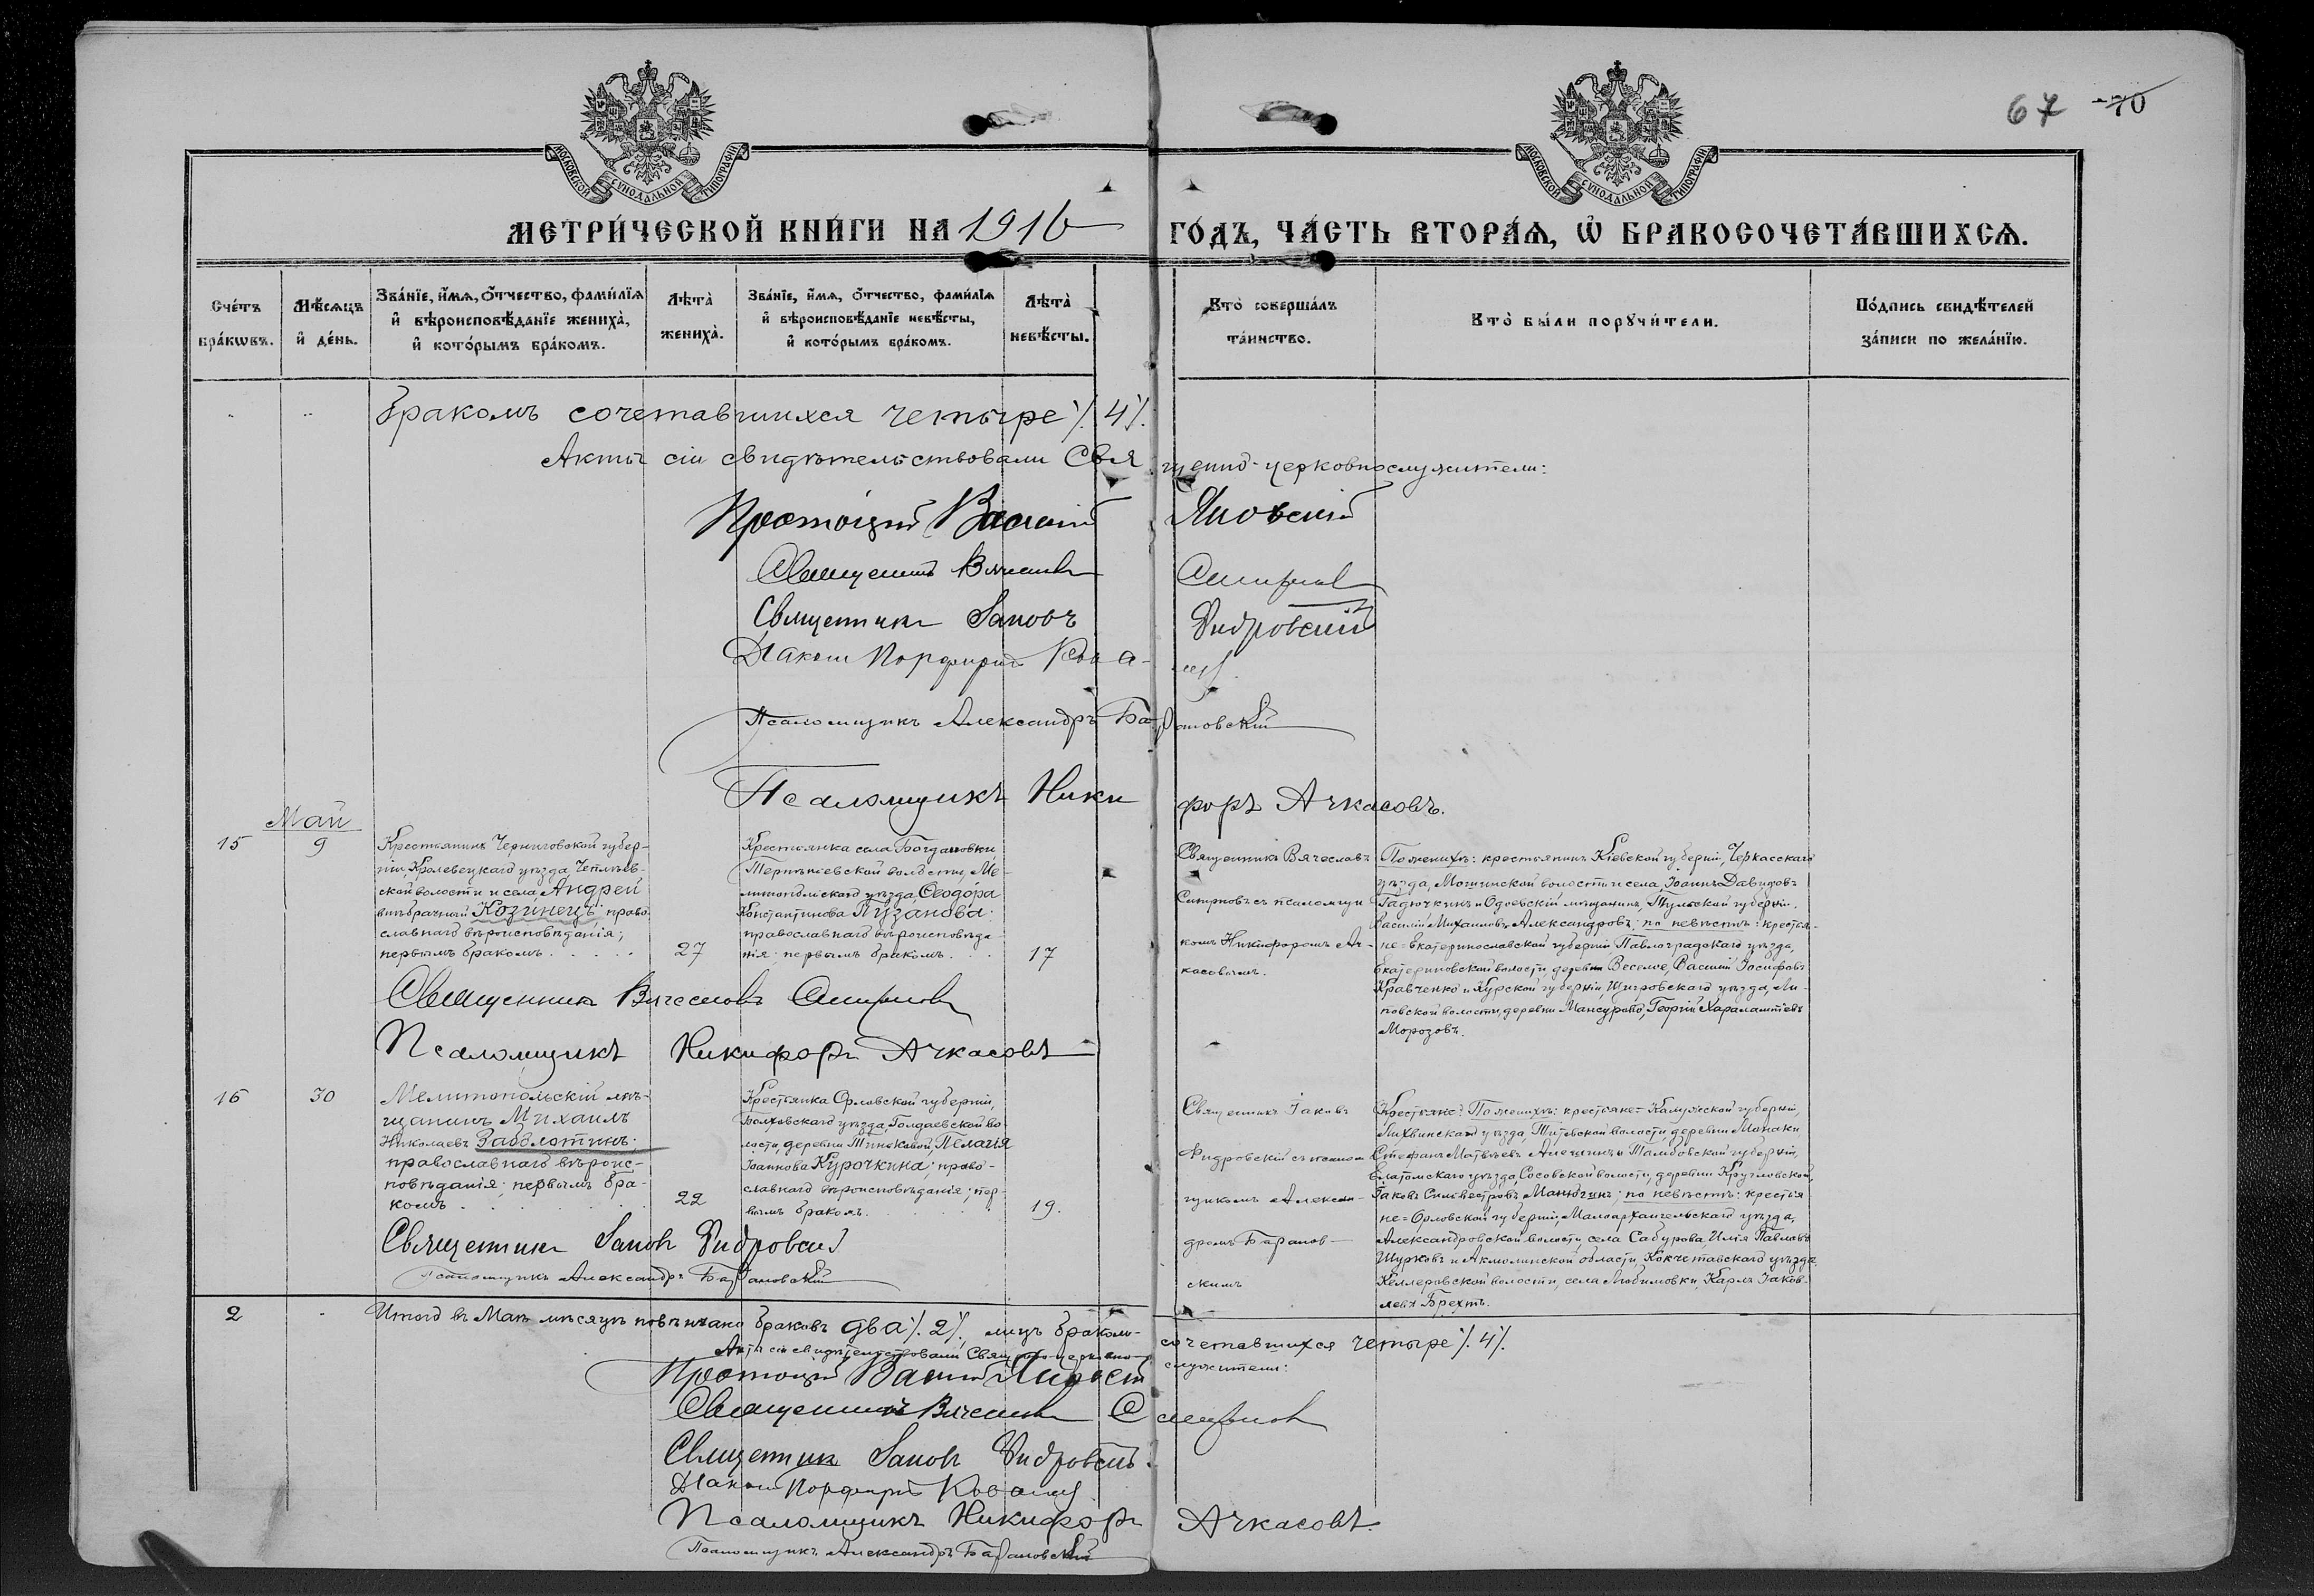 67 70
МОСКОВСКОЙ СѴНОДАЛЬНОЙ ТИПОГРАФІИ
МОСКОВСКОЙ СѴНОДАЛЬНОЙ ТИПОГРАФІИ
МЕТРИ́ЧЕСКОЙ КНИ́ГИ НА 1916 ГО́ДЪ, ЧА́СТЬ ВТОРА́Ѧ, Ѡ҆ БРАКОСОЧЕТА́ВШИХСѦ.
Счѐтъ бра́кѡвъ.
Мѣ́сѧцъ и҆ де́нь.
Зва́нїе, и҆́мѧ, ѻ҆́тчество, фами́лїѧ и҆ вѣроисповѣ́данїе жениха̀, и҆ кото́рымъ бра́комъ.
Лѣта̀ жениха̀.
Зва́нїе, и҆́мѧ, ѻ҆́тчество, фами́лїѧ и҆ вѣроисповѣ́данїе невѣ́сты, и҆ кото́рымъ бра́комъ.
Лѣта̀ невѣ́сты.
Кто̀ соверша́лъ та́инство.
Кто̀ бы́ли порꙋчи́тели.
По́дпись свидѣ́телей за́писи по жела́нїю.
бракомъ сочетавшихся четыре /.4/.
Акты сіи свидѣтельствовали Священно-церковнослужители:
Протоіерей Василій Яновскій
Священникъ Вячеславъ Смирновъ
Священникъ Іаковъ Ѳидровскій
Діаконъ Порфирій
Псаломщикъ Александръ Барановскій
Псаломщикъ Никифоръ Ачкасовъ.
Май
15
9
Крестьянинъ Черниговской губер-
ніи, Кролевецкаго уѣзда,
ской волости и села, Андрей
внѣбрачный Козинецъ; право-
славнаго вѣроисповѣданія;
первымъ бракомъ.
27
Крестьянка села Богдановки
Терпѣніевской волости, Ме-
литопольскаго уѣзда, Ѳеодора
Константинова Пузанова;
православнаго вѣроисповѣда-
нія; первымъ бракомъ.
17
Священникъ Вячеславъ
Смирновъ съ псаломщи-
комъ Никифоромъ Ач-
касовымъ.
По женихѣ: крестьянинъ Кіевской губерніи, Черкасскаго
уѣзда, Мошинской волости и села, Іоаннъ Давидовъ
Гадючкинъ и Одоевскій мѣщанинъ, Тульской губерніи,
Василій Михаиловъ Александровъ; по невѣстѣ: крестья-
не = Екатеринославской губерніи, Павлоградскаго уѣзда,
Екатериновской волости, деревни Веселое, Василій Іосифовъ
Кравченко и Курской губерніи, Щигровскаго уѣзда, Ли-
повской волости, деревни Мансурово, Георгій Харалампіевъ
Морозовъ.
Священникъ Вячеславъ Смирновъ
Псаломщикъ Никифоръ Ачкасовъ
16
30
Мелитопольскій мѣ-
щанинъ Михаилъ
Николаевъ Заболотинъ;
православнаго вѣроис-
повѣданія; первымъ бра-
комъ.
22
Крестьянка Орловской губерніи,
Болховскаго уѣзда, Голдаевской во-
лости, деревни Тиньковой, Пелагія
Іоаннова Курочкина; право-
славнаго вѣроисповѣданія; пер-
вымъ бракомъ.
19.
Священникъ Іаковъ
Ѳидровскій съ псалом-
щикомъ Алексан-
дромъ Баранов-
скимъ
Крестьяне: По женихѣ: крестьяне = Калужской губерніи,
Лихвинскаго уѣзда, волости, деревни
Стефанъ Матвѣевъ Алешинъ и Тамбовской губерніи,
Елатомскаго уѣзда, Сосовской волости, деревни Кругловской,
Іаковъ Сильвестровъ Манюгинъ; по невѣстѣ: крестья-
не = Орловской губерніи, Малоархангельскаго уѣзда,
Александровской волости, села Сабурова, Илія Павловъ
Шурковъ и Акмолинской области, Кокчетавскаго уѣзда,
Келлеровской волости, села Любимовки, Карлъ Іаков-
левъ Брехтъ.
Священникъ Іаковъ Ѳидровскій
Псаломщикъ Александръ Барановскій
2
Итого въ Маѣ мѣсяцѣ повѣнчано браковъ два /.2/., лицъ бракомъ сочетавшихся четыре /.4/.
Акты сіи свидѣтельствовали Священно-церковно-служители:
Протоіерей Василій Яновскій
Священникъ Вячеславъ Смирновъ
Священникъ Іаковъ Ѳидровскій
Діаконъ Порфирій
Псаломщикъ Никифоръ Ачкасовъ.
Псаломщикъ Александръ Барановскій